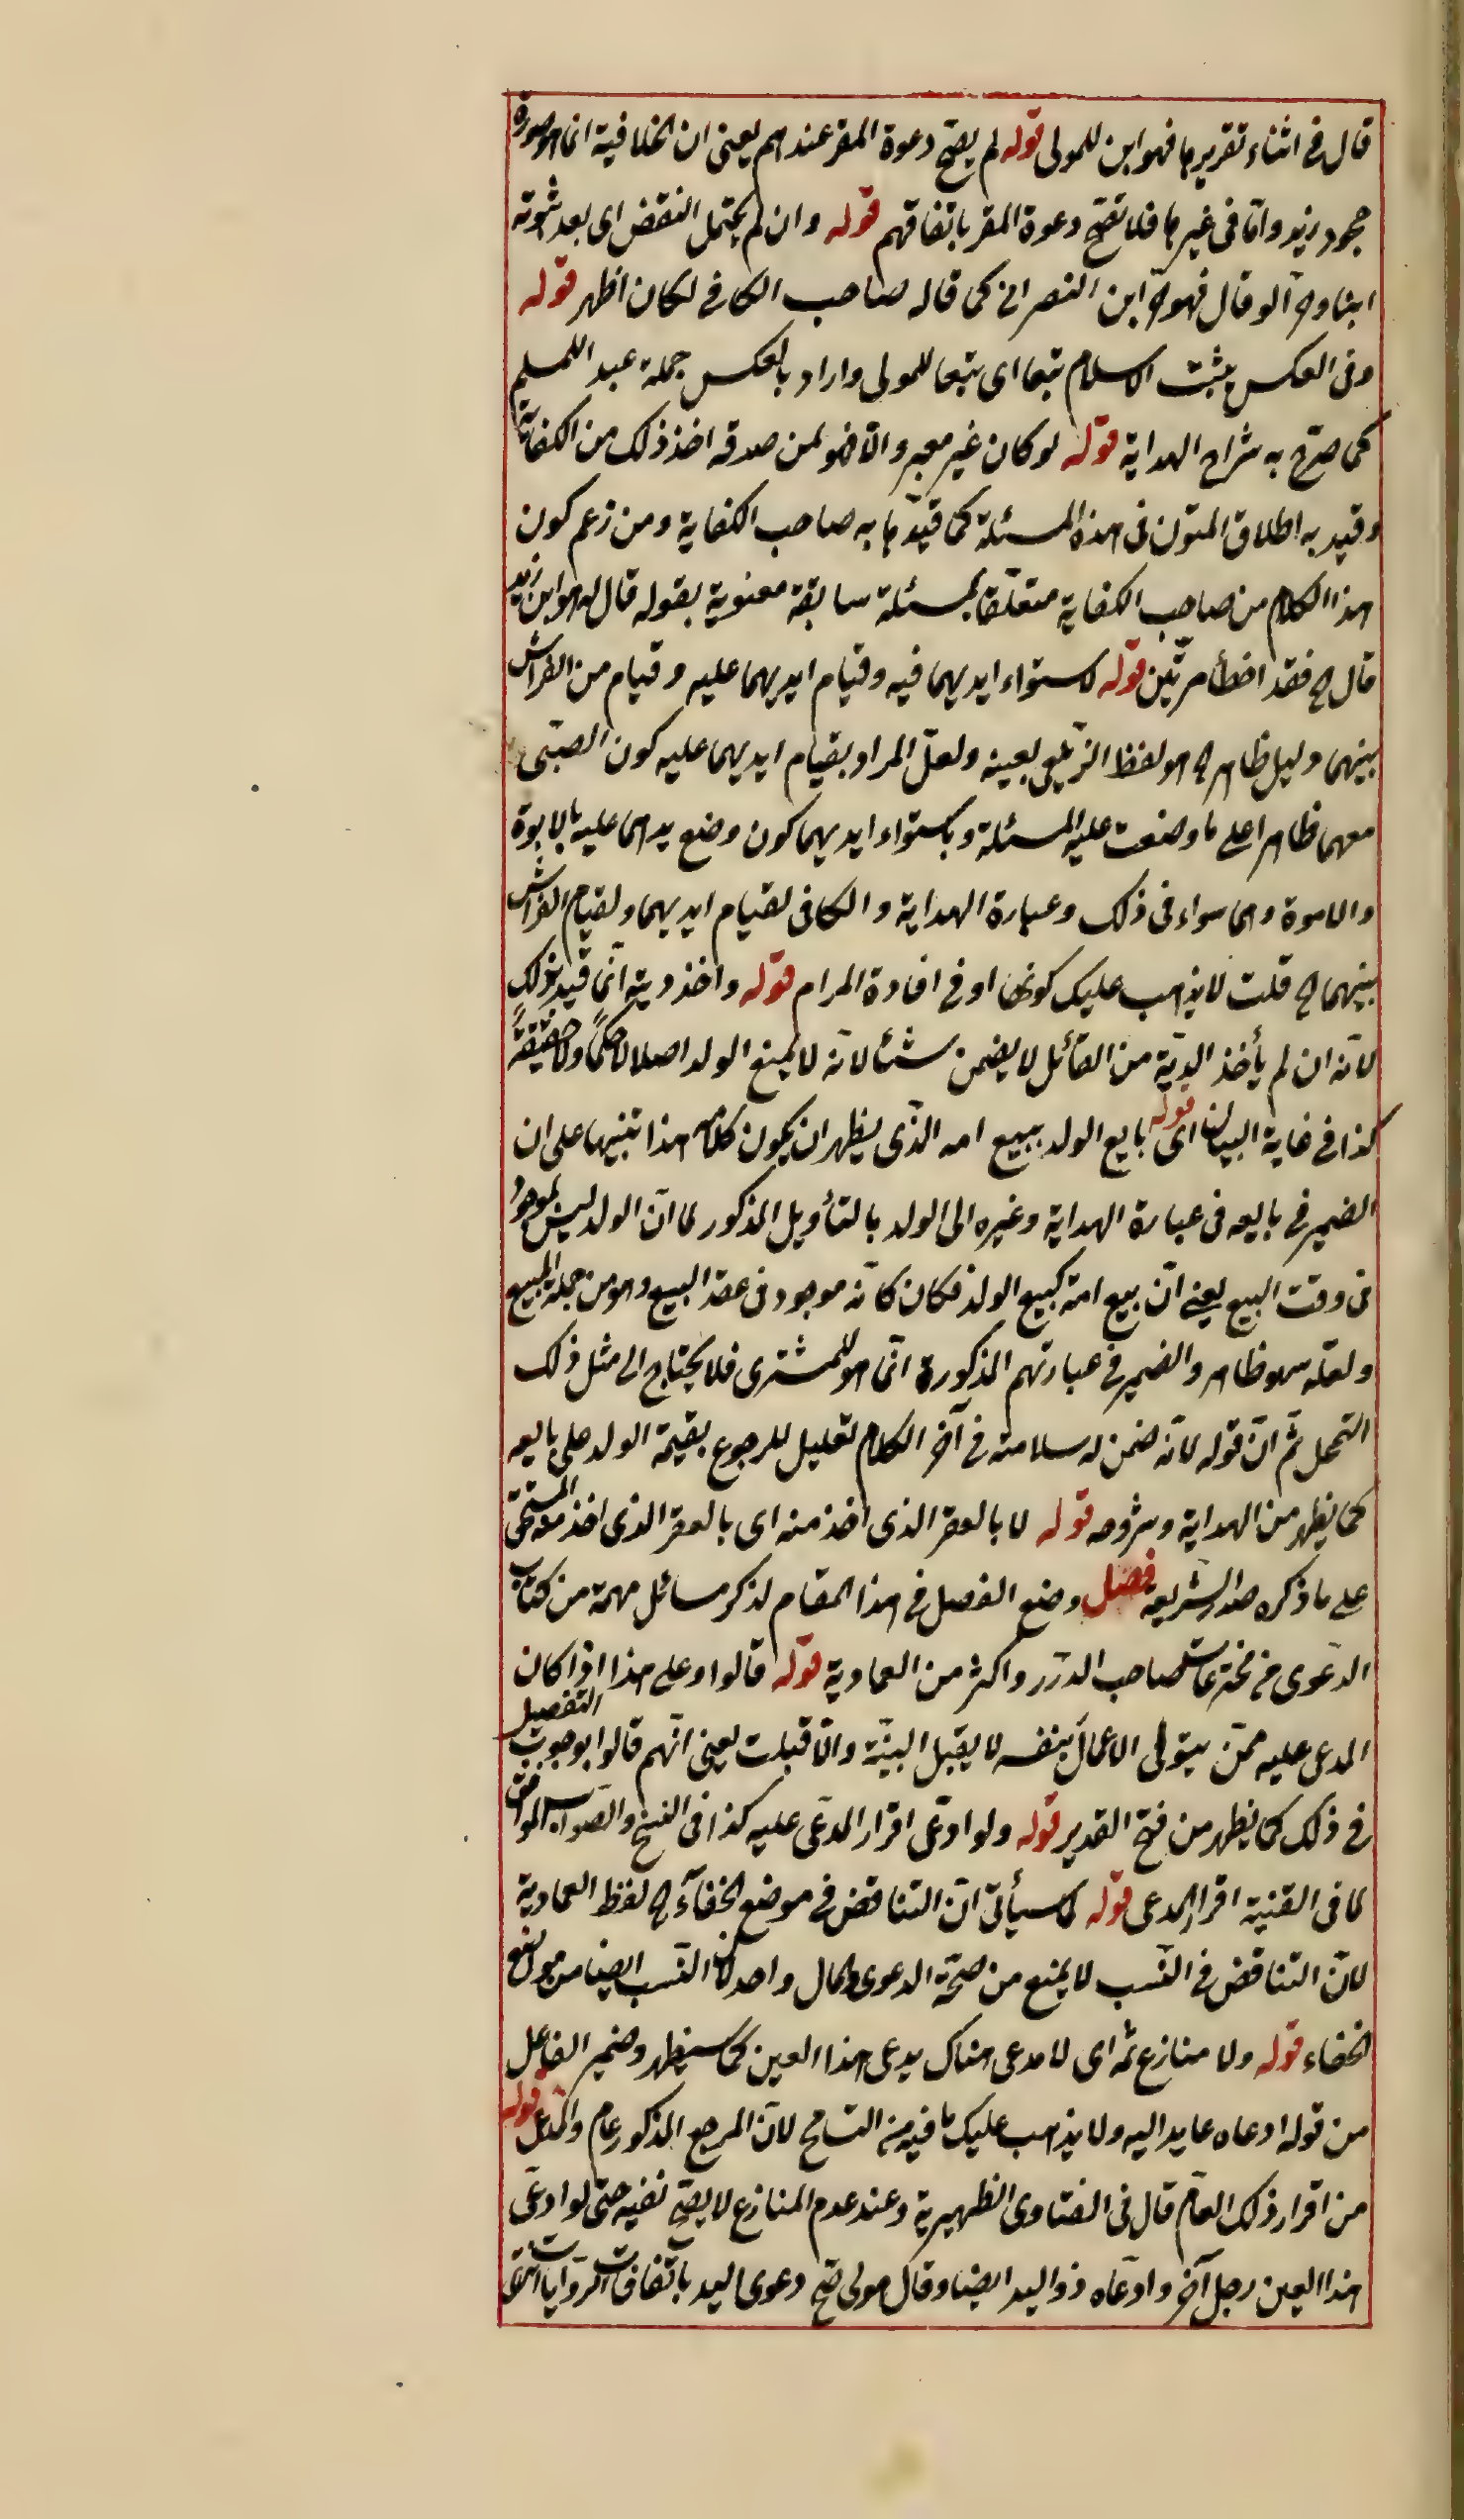 قال في اثناء تقريرها فهو ابن للمولى قوله لم يصح دعوة المقر عندهم يعنى ان الخلافية انما هو صورة
جحود زيد واما فى غيرها فلا تصح دعوة المقر باتفاقهم قوله وان لم يحتمل النقض اى بعد ثبوته
ابنا وح لو قال فهو ح ابن النصرانى كما قاله صاحب الكافى لكان اظهر قوله
وفى العكس يثبت الاسلام تبعا اى تبعا للمولى واراد بالعكس جملة عبد المسلم
كما صرّح به شراح الهداية قوله لو كان غير معبر والا فهو لمن صدقه اخذ ذلك من الكفاية
وقيد به اطلاق المتون فى هذه المسئلة كما قيّدها به صاحب الكفاية ومن زعم كون
هذا الكلام من صاحب الكفاية متعلقا بمسئلة سابقة معنوية بقوله قال هو ابن زيد
قال ح فقد اخطأ مرتين قوله لاستواء ايديهما فيه وقيام ايديهما عليه وقيام من الفراش
بينهما دليل ظاهر ح هو لفظ الزيلعى بعينه ولعلّ المراد بقيام ايديهما عليه كون الصبّى
معهما ظاهرا على ما وضعت عليه المسئلة وباستواء ايديهما كون وضع يدهما عليه بالابوة
والاموة وهما سواء فى ذلك وعبارة الهداية والكافى لقيام ايديهما ولقيام الفراش
بينهما ح قلت لا يذهب عليك كونها اوفى افادة المرام قوله واخذ ديته انما قيد بذلك
لانه ان لم يأخذ الدية من القاتل لا يضمن شئا لانه لا يمنع الولد اصلا لا حكمًا ولا حقيقةً
كذا فى غاية البيان قوله اى بايع الولد ببيع امه الذى يظهر ان يكون كلامه هذا تنبيها على ان
الضمير فى بايعه فى عبارة الهداية وغيره الى الولد بالتأويل المذكور لما ان الولد ليس بموجود
فى وقت البيع يعنى انّ بيع امته كبيع الولد فكان كانه موجود فى عقد البيع وهو من جملة المبيع
ولعله سهو ظاهر والضمير فى عبارتهم المذكورة انما هو للمشترى فلا يحتاج الى مثل ذلك
التمحل ثم انّ قوله لانه ضمن له سلامته فى آخر الكلام تعليل للرجوع بقيمة الولد على بايعه
كما يظهر من الهداية وشروحه قوله لا بالعقر الذى اخذ منه اى بالعقر الذى اخذ منه المستحق
على ما ذكره صدر الشريعة فصل وضع الفصل فى هذا المقام لذكر مسائل مهمة من كتاب
الدعوى من مخترعات صاحب الدرر واكثر من العمادية قوله قالوا وعلى هذا اذا كان
المدعى عليه ممّن يتولى الاعمال بنفسه لا يقبل البيّنة والا قبلت يعنى انّهم قالوا بوجوب التفصيل
فى ذلك كما يظهر من فتح القدير قوله ولو ادّعى اقرار المدّعى عليه كذا فى النسخ والصواب الموافق
لما فى القنية اقرار المدعى قوله كما سيأتى انّ التناقض فى موضع الخفاء ح لفظ العمادية
لانّ التناقض فى النّسب لا يمنع من صحة الدعوى والمآل واحد لان النّسب ايضا من موضع
الخفاء قوله ولا منازع ثمه اى لا مدعى هناك يدعى هذا العين كما سيظهر وضمير الفاعل
من قوله ادعاه عايد اليه ولا يذهب عليك ما فيه من التسامح لانّ المرجع المذكور عام قوله
من اقرار ذلك العام قال فى الفتاوى الظهيرية وعند عدم المنازع لا يصح نفيه حتى لو ادعى
هذا العين رجل آخر وادّعاه ذو اليد ايضا وقال هو لى صح دعوى اليد باتفاق الروايات